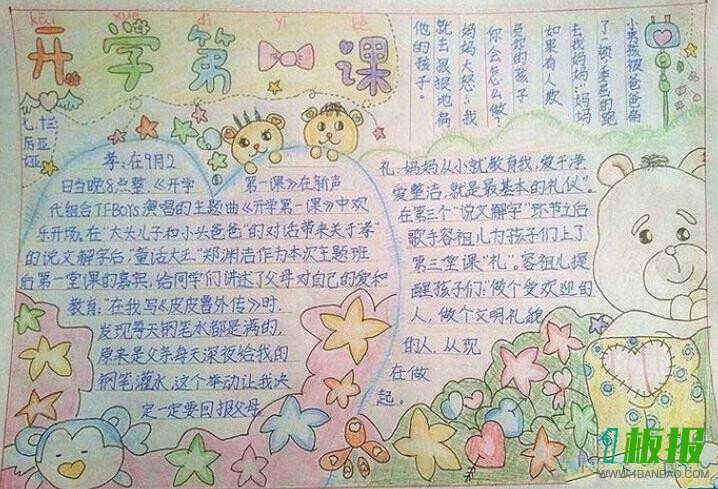 kāi xué dì yī kè
开学第一课
七.十三
厉
亚
娅
小男孩被爸爸扁
了一顿,委屈的跑
去找妈妈"妈妈
如果有人欺
负你的孩子
你会怎么做?
妈妈大怒:"我
就去狠狠地扁
他的孩子。
孝:在9月2
日当晚8点整,《开学第一课》在新声
代组合TFBOYS演唱的主题曲《开学第一课》中欢
乐开场。在"大头儿子和小头爸爸"的对话带来关于孝"
的说文解字后,"童话大王"郑渊洁作为本次主题班
后第一堂课的嘉宾,给同学们讲述了父母对自己的爱和
教育,"在我写《皮皮鲁外传》时,
发现每天钢笔水都是满的,
原来是父亲每天深夜给我的
钢笔灌水,这个举动让我决
定一定要回报父母
礼:妈妈从小就教育我,爱干净
爱整洁,就是最基本的礼仪"。
在第三个"说文解字"环节之后
歌手容祖儿为孩子们上了
第三堂课"礼"。容祖儿提
醒孩子们:"做个受欢迎的
人,做个文明礼貌
的人,从现
在做
起。
1板报
WWW.1BANBAO.COM